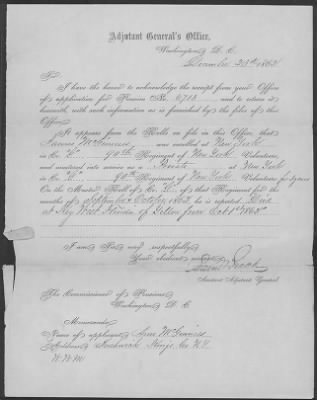 Adjutant General's Office,
Washington, D. C.
December 1862
Sir,
I have the honor to acknowledge the receipt from your Office
of application for Pension No. 6713, and to return it
herewith with such information as is furnished by the files of this
Office.
It appears from the Rolls on file in this Office, that
James McGinniss was enrolled at New York
in Co. 90th Regiment of New York Volunteers,
and mustered into service as a at New York
in Co. 90th Regiment of New York Volunteers for 3 years
On the Muster Roll of Co. of that Regiment for the
months of September & October, 1862, he is reported Died
at Key West Florida of Fever Oct 1st 1862.
I am, Sir, very respectfully,
Your obedient servant,
Assistant Adjutant General.
The Commissioner of Pensions
Washington, D. C.
Memoranda.
Name of applicant, McGinniss
Address, Kings Co. N.Y.